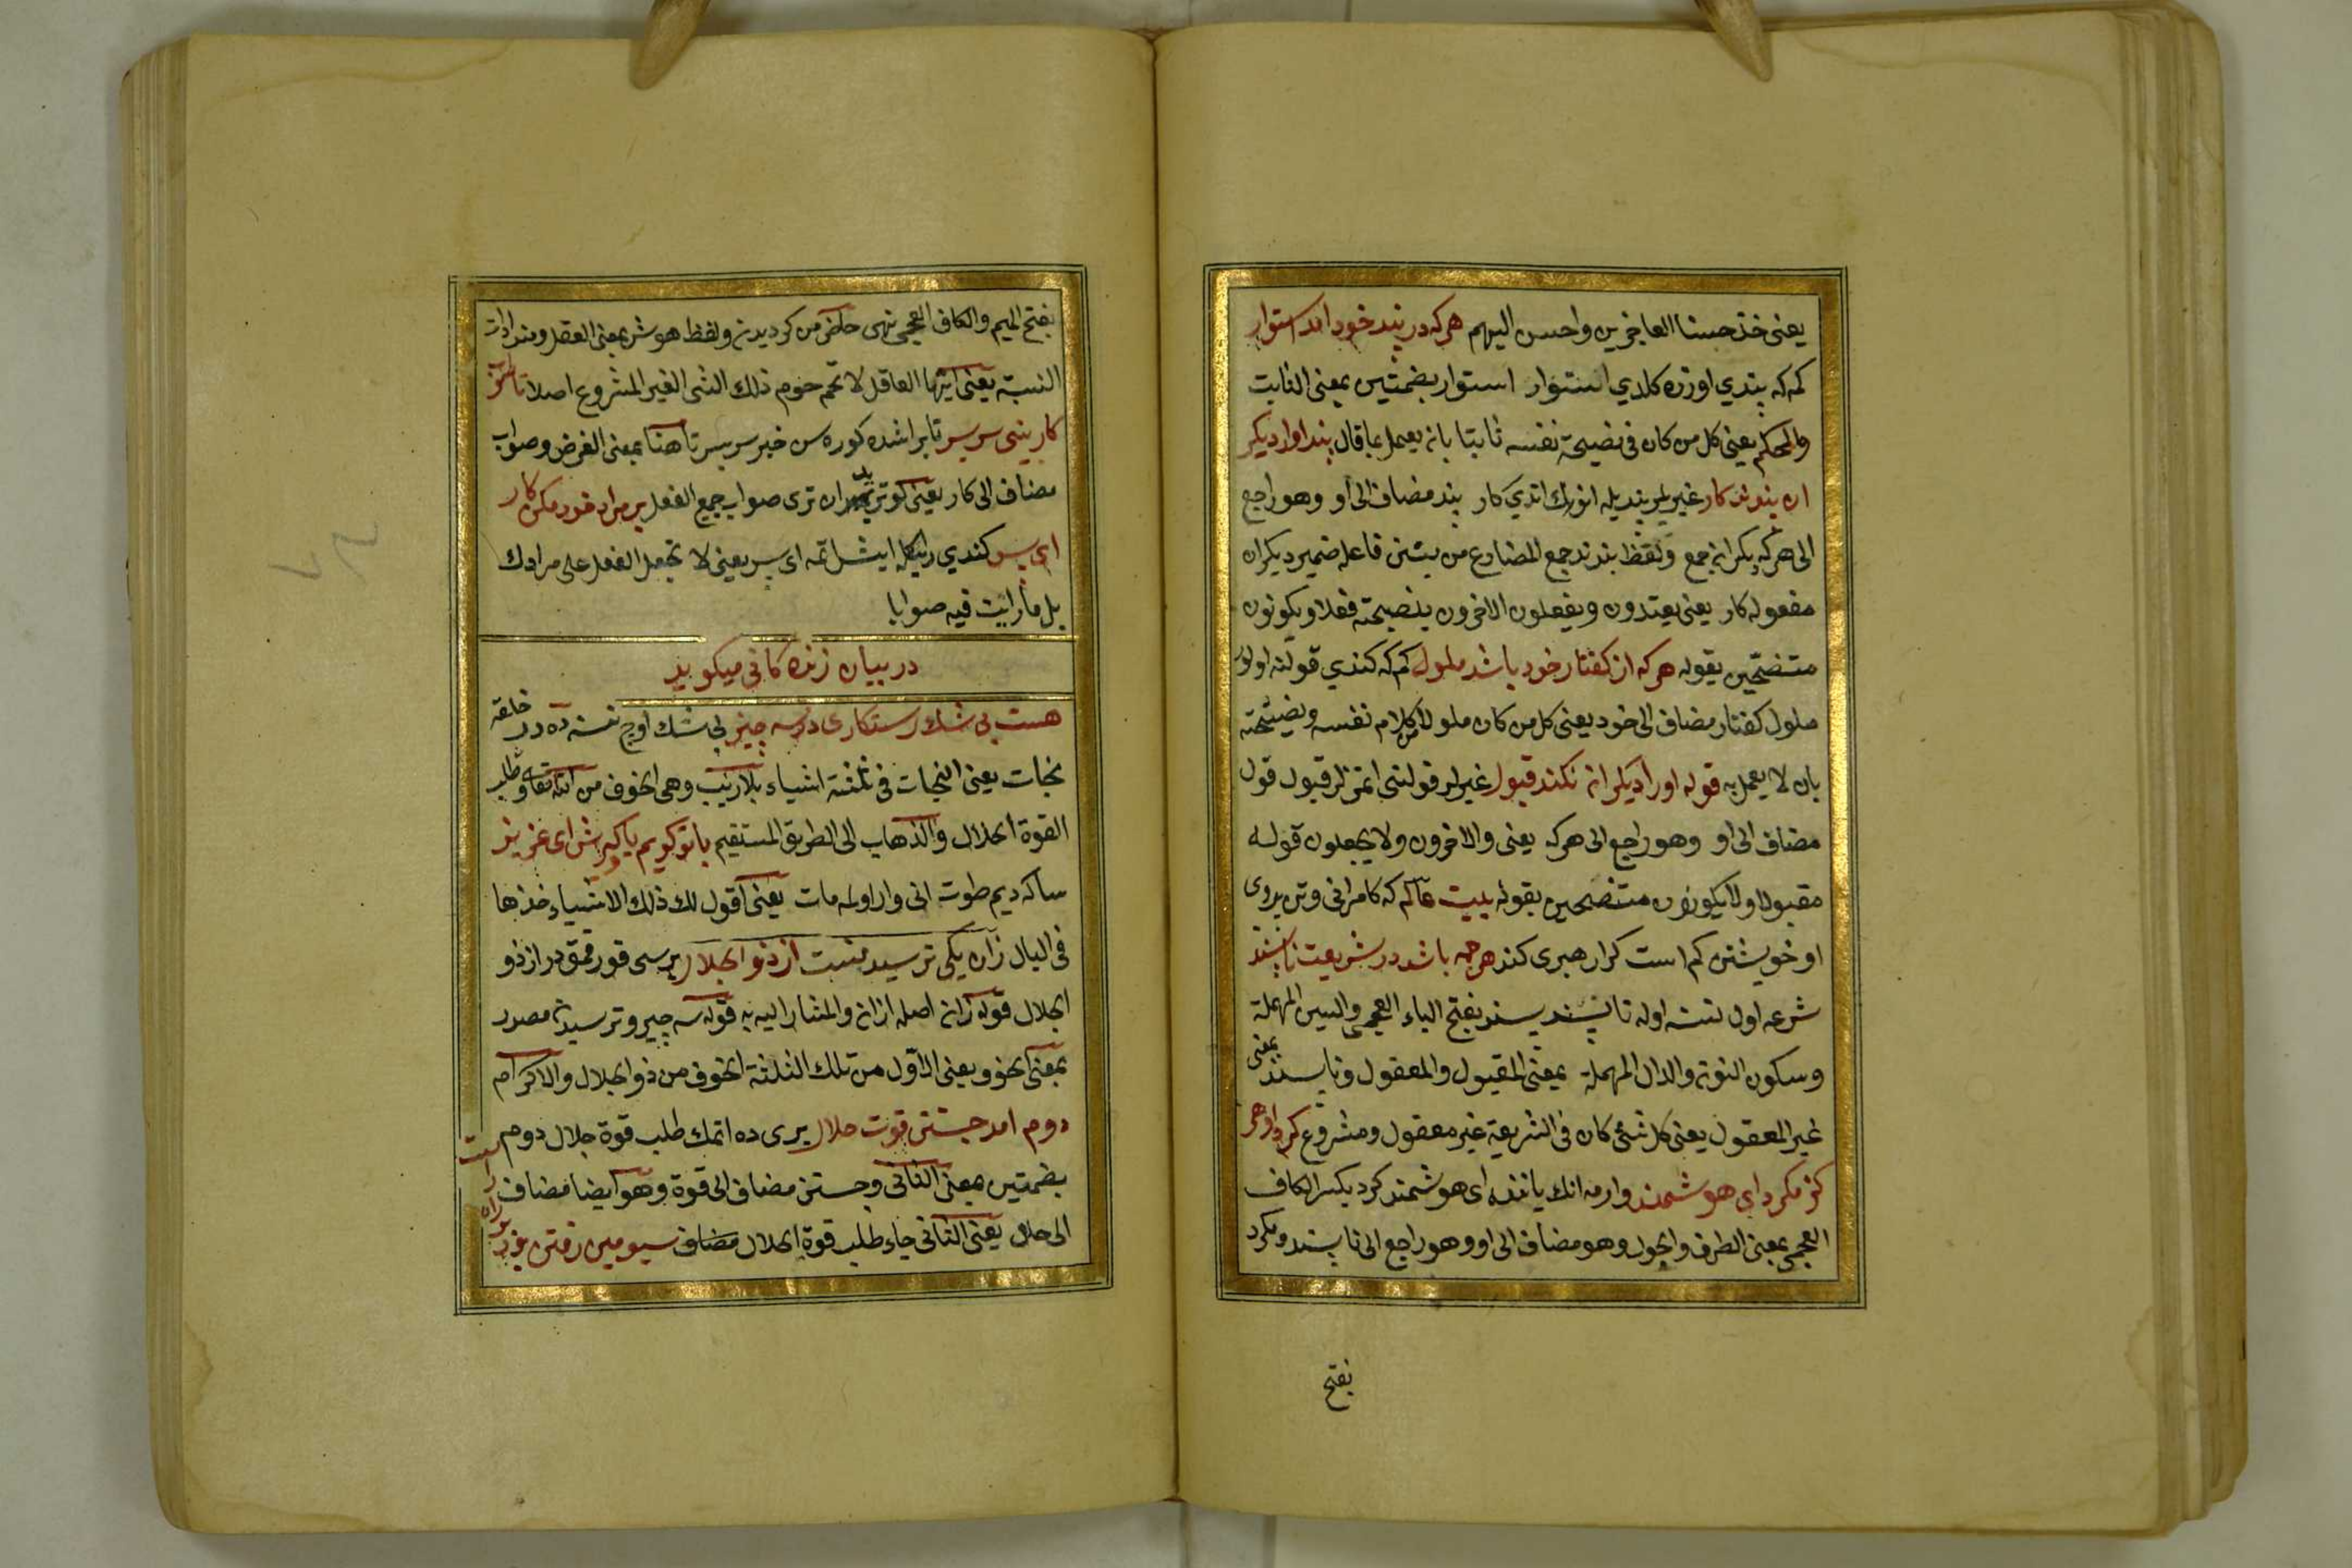 يعنى خذ حسنا العاخرين واحسن اليهم هركه در پند خود امد استوار
كمه كه پندي اوزره كلدي استوار استوار بضمتين بمعنى الثابت
والمحكم يعنى كل من كان فى نصيحة نفسه ثابتا بانه يعمل بما قال پند اورا ديكر
ان بندند كار غيريلر پنديله انوك ايدي كار پند مضاف الى او وهو راجع
الى هركه ديكران جمع ولفظ بندند جمع المضارع من بستن فاعله ضمير ديكران
مفعوله كار يعنى يعتدون ويفعلون الاخرون بنصيحته فعلا ويكونون
متنصحين بقوله هركه از كفتار خود باشد ملول كم كه كندي قولنه اولور
ملول كفتار مضاف الى خود يعنى كل من كان ملولا من كلام نفسه ونصيحته
بان لا يعمل به قول اورا ديكران نكند قبول غيرلر قولنى اتمزلر قبول قول
مضاف الى او وهو راجع الى هركه يعنى والاخرون ولا يجعلون قوله
مقبولا ولا يكونون متنصحين بقوله بيت عالم كه كامرانى وتن پرورى
او خويشتن كم است كرا رهبرى كند هرچه باشد در شريعت ناپسند
شرعه اول نسنه اوله ناپسند پسند بفتح الباء العجمى والسين المهملة
وسكون النون والدال المهملة بمعنى المقبول والمعقول وناپسند بمعنى
غير المعقول يعنى كل شئ كان فى الشريعة غير معقول ومشروع كرد او هر
كز مكرد اى هوشمند وارمه انك ياننه اى هوشمند كرد بكسر الكاف
العجمى بمعنى الطرف والحول وهو مضاف الى او وهو راجع الى ناپسند ومكرد
بفتح
بفتح الميم والكاف العجمى نهى حاضر من كرديدن ولفظ هوش بمعنى العقل ومند ادات
النسبة يعنى ايها العاقل لا تحم حوم ذلك الشى الغير المشروع اصلا تا
كار بينى سر بسر تا براشده كوره سن خير سر بسر تا هنا بمعنى الغرض وصواب
مضاف الى كار يعنى ان ترى صواب جميع الفعل بر مراد خود مكن كار
اى پسر كندي رايكله ايشلتمه اى پسر يعنى لا تجعل الفعل على مرادك
بل ما رايت فيه صوابا
در بيان زنده كانى ميكويد
هست بى شك رستكارى در سه چيز بى شك اوچ نسنه ده در خلقه
نجات يعنى النجات فى ثلثة اشياء بلا ريب وهى الخوف من الله تعالى وطلب
القوة الحلال والذهاب الى الطريق المستقيم با تو كويم ياد كيرش اى عزيز
ساكه ديم طوت انى وار اولمه مات يعنى اقول لك ذلك الاشياء خذها
فى البال زان يكى ترسيدنست از ذو الجلال بريسى قورقمقدر از ذو
الجلال قوله زان اصله از ان والمشار اليه به قوله سه چيز وترسيدن مصدر
بمعنى الخوف يعنى الاول من تلك الثلثة الخوف من ذو الجلال والاكرام
دوم امد جستن قوت حلال برى ده اتمك طلب قوة حلال دوم
بضمتين بمعنى الثانى وجستن مضاف الى قوة وهو ايضا مضاف
الى حلال يعنى الثانى جاء طلب قوة الحلال مضاف سيومين رفتن بود
بر راه راست